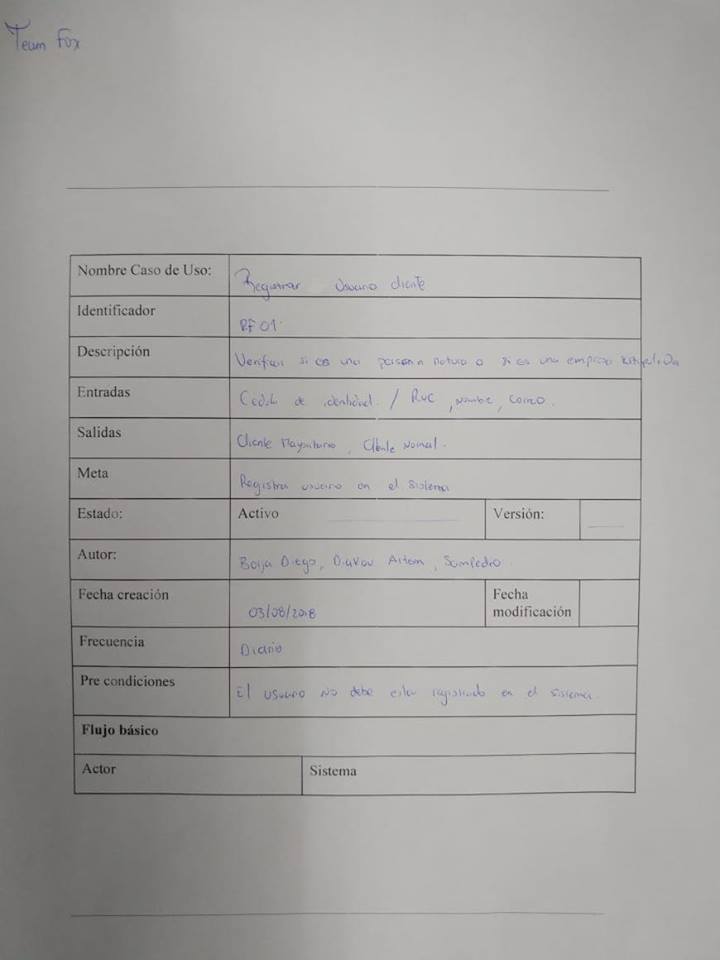 Team Fox
Nombre Caso de Uso: Registrar Usuario cliente
Identificador RF01
Descripción Verificar si es una persona natura o si es una empresa
Entradas Cedula de identidad / Ruc, Nombre, correo.
Salidas Cliente Mayoritario, Cliente Normal.
Meta Registrar usuario en el sistema
Estado: Activo Versión:
Autor: Borja Diego, Artem, Sampedro
Fecha creación 03/08/2018 Fecha modificación
Frecuencia Diario
Pre condiciones El usuario no debe estar registrado en el sistema.
Flujo básico
Actor Sistema